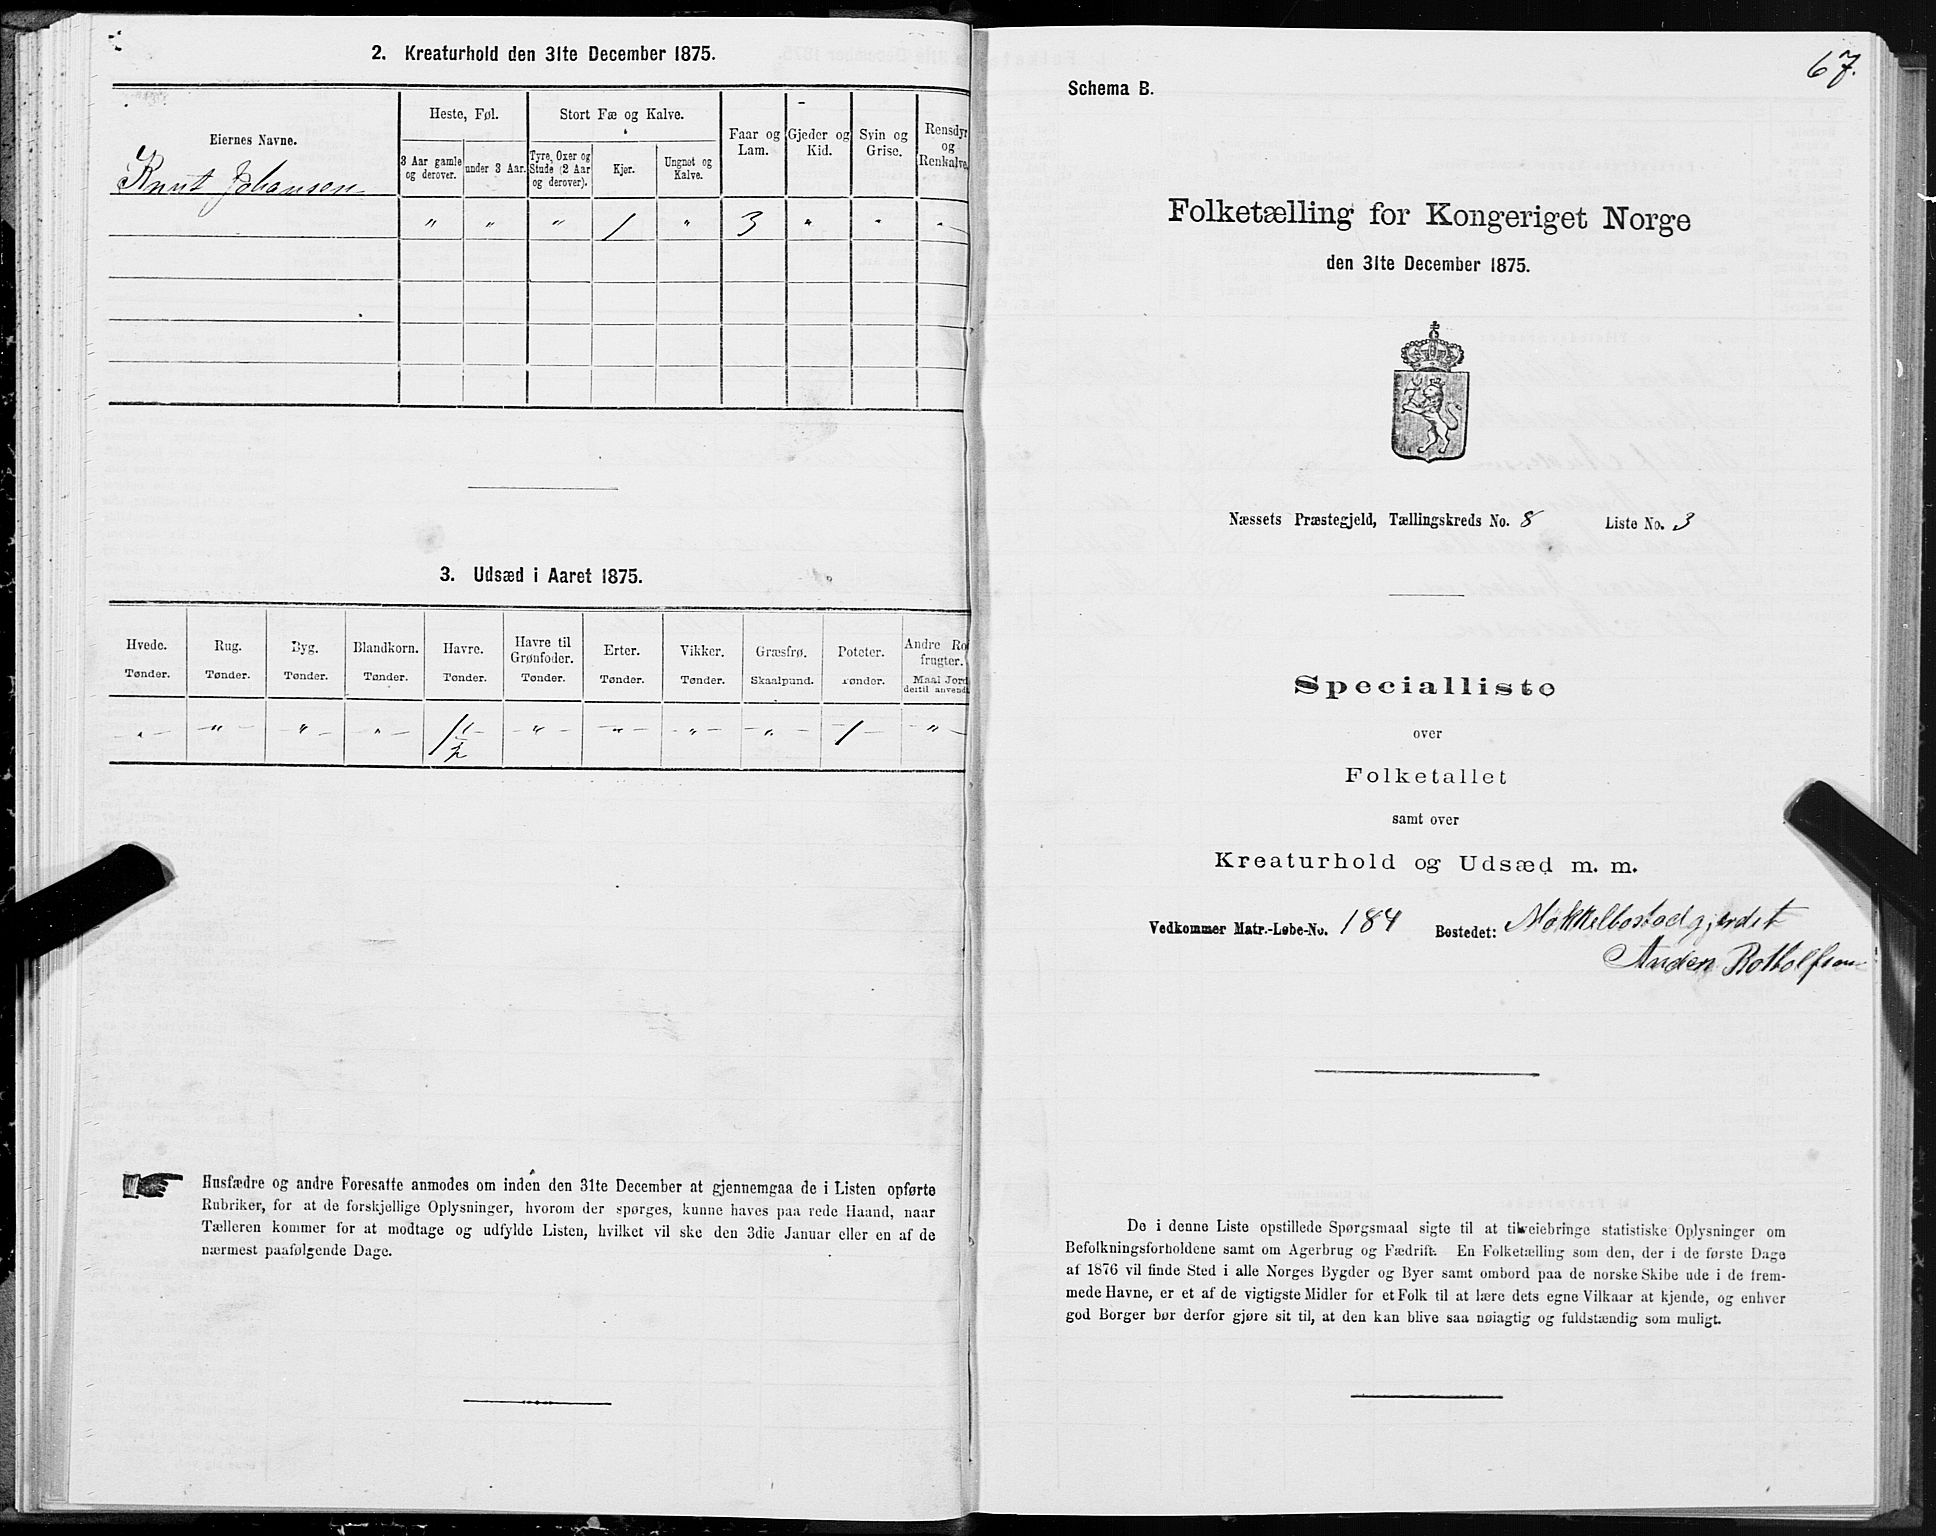 2. Kreaturhold den 31te December 1875.
Eiernes Navne.
Heste, Føl.
Stort Fæ og Kalve.
Faar og Lam.
Gjeder og Kid.
Svin og Grise.
Rensdyr og Renkalve.
3 Aar gamle og derover.
under 3 Aar.
Tyre, Oxer og Stude (2 Aar og derover).
Kjør.
Ungnet og Kalve.
Knut Johansen
" " " 1 " 3 " " "
3. Udsæd i Aaret 1875.
Hvede. Rug. Byg. Blandkorn. Havre. Havre til Grønfoder. Erter. Vikker. Græsfrø. Poteter. Andre Ro
frugter.
Tønder. Tønder. Tønder. Tønder. Tønder. Tønder. Tønder. Tønder. Skaalpund. Tønder. Maal Jord
dertil anvendt
" " " " 1 1/2 " " " " 1 "
Husfædre og andre Foresatte anmodes om inden den 31te December at gjennemgaa de i Listen opførte
Rubriker, for at de forskjellige Oplysninger, hvorom der spørges, kunne haves paa rede Haand, naar
Tælleren kommer for at modtage og udfylde Listen, hvilket vil ske den 3die Januar eller en af de
nærmest paafølgende Dage.
67.
Schema B.
Folketælling for Kongeriget Norge
den 31te December 1875.
Næssets Præstegjeld, Tællingskreds No. 8 Liste No. 3
Specialliste
over
Folketallet
samt over
Kreaturhold og Udsæd m. m.
Vedkommer Matr.-Løbe-No. 184 Bostedet: Møkkelbostadgjerdet
Anden Rotholfsen
De i denne Liste opstillede Spørgsmaal sigte til at tilveiebringe statistiske Oplysninger om
Befolkningsforholdene samt om Agerbrug og Fædrift. En Folketælling som den, der i de første Dage
af 1876 vil finde Sted i alle Norges Bygder og Byer samt ombord paa de norske Skibe ude i de frem-
mede Havne, er et af de vigtigste Midler for et Folk til at lære dets egne Vilkaar at kjende, og enhver
god Borger bør derfor gjøre sit til, at den kan blive saa nøiagtig og fuldstændig som muligt.